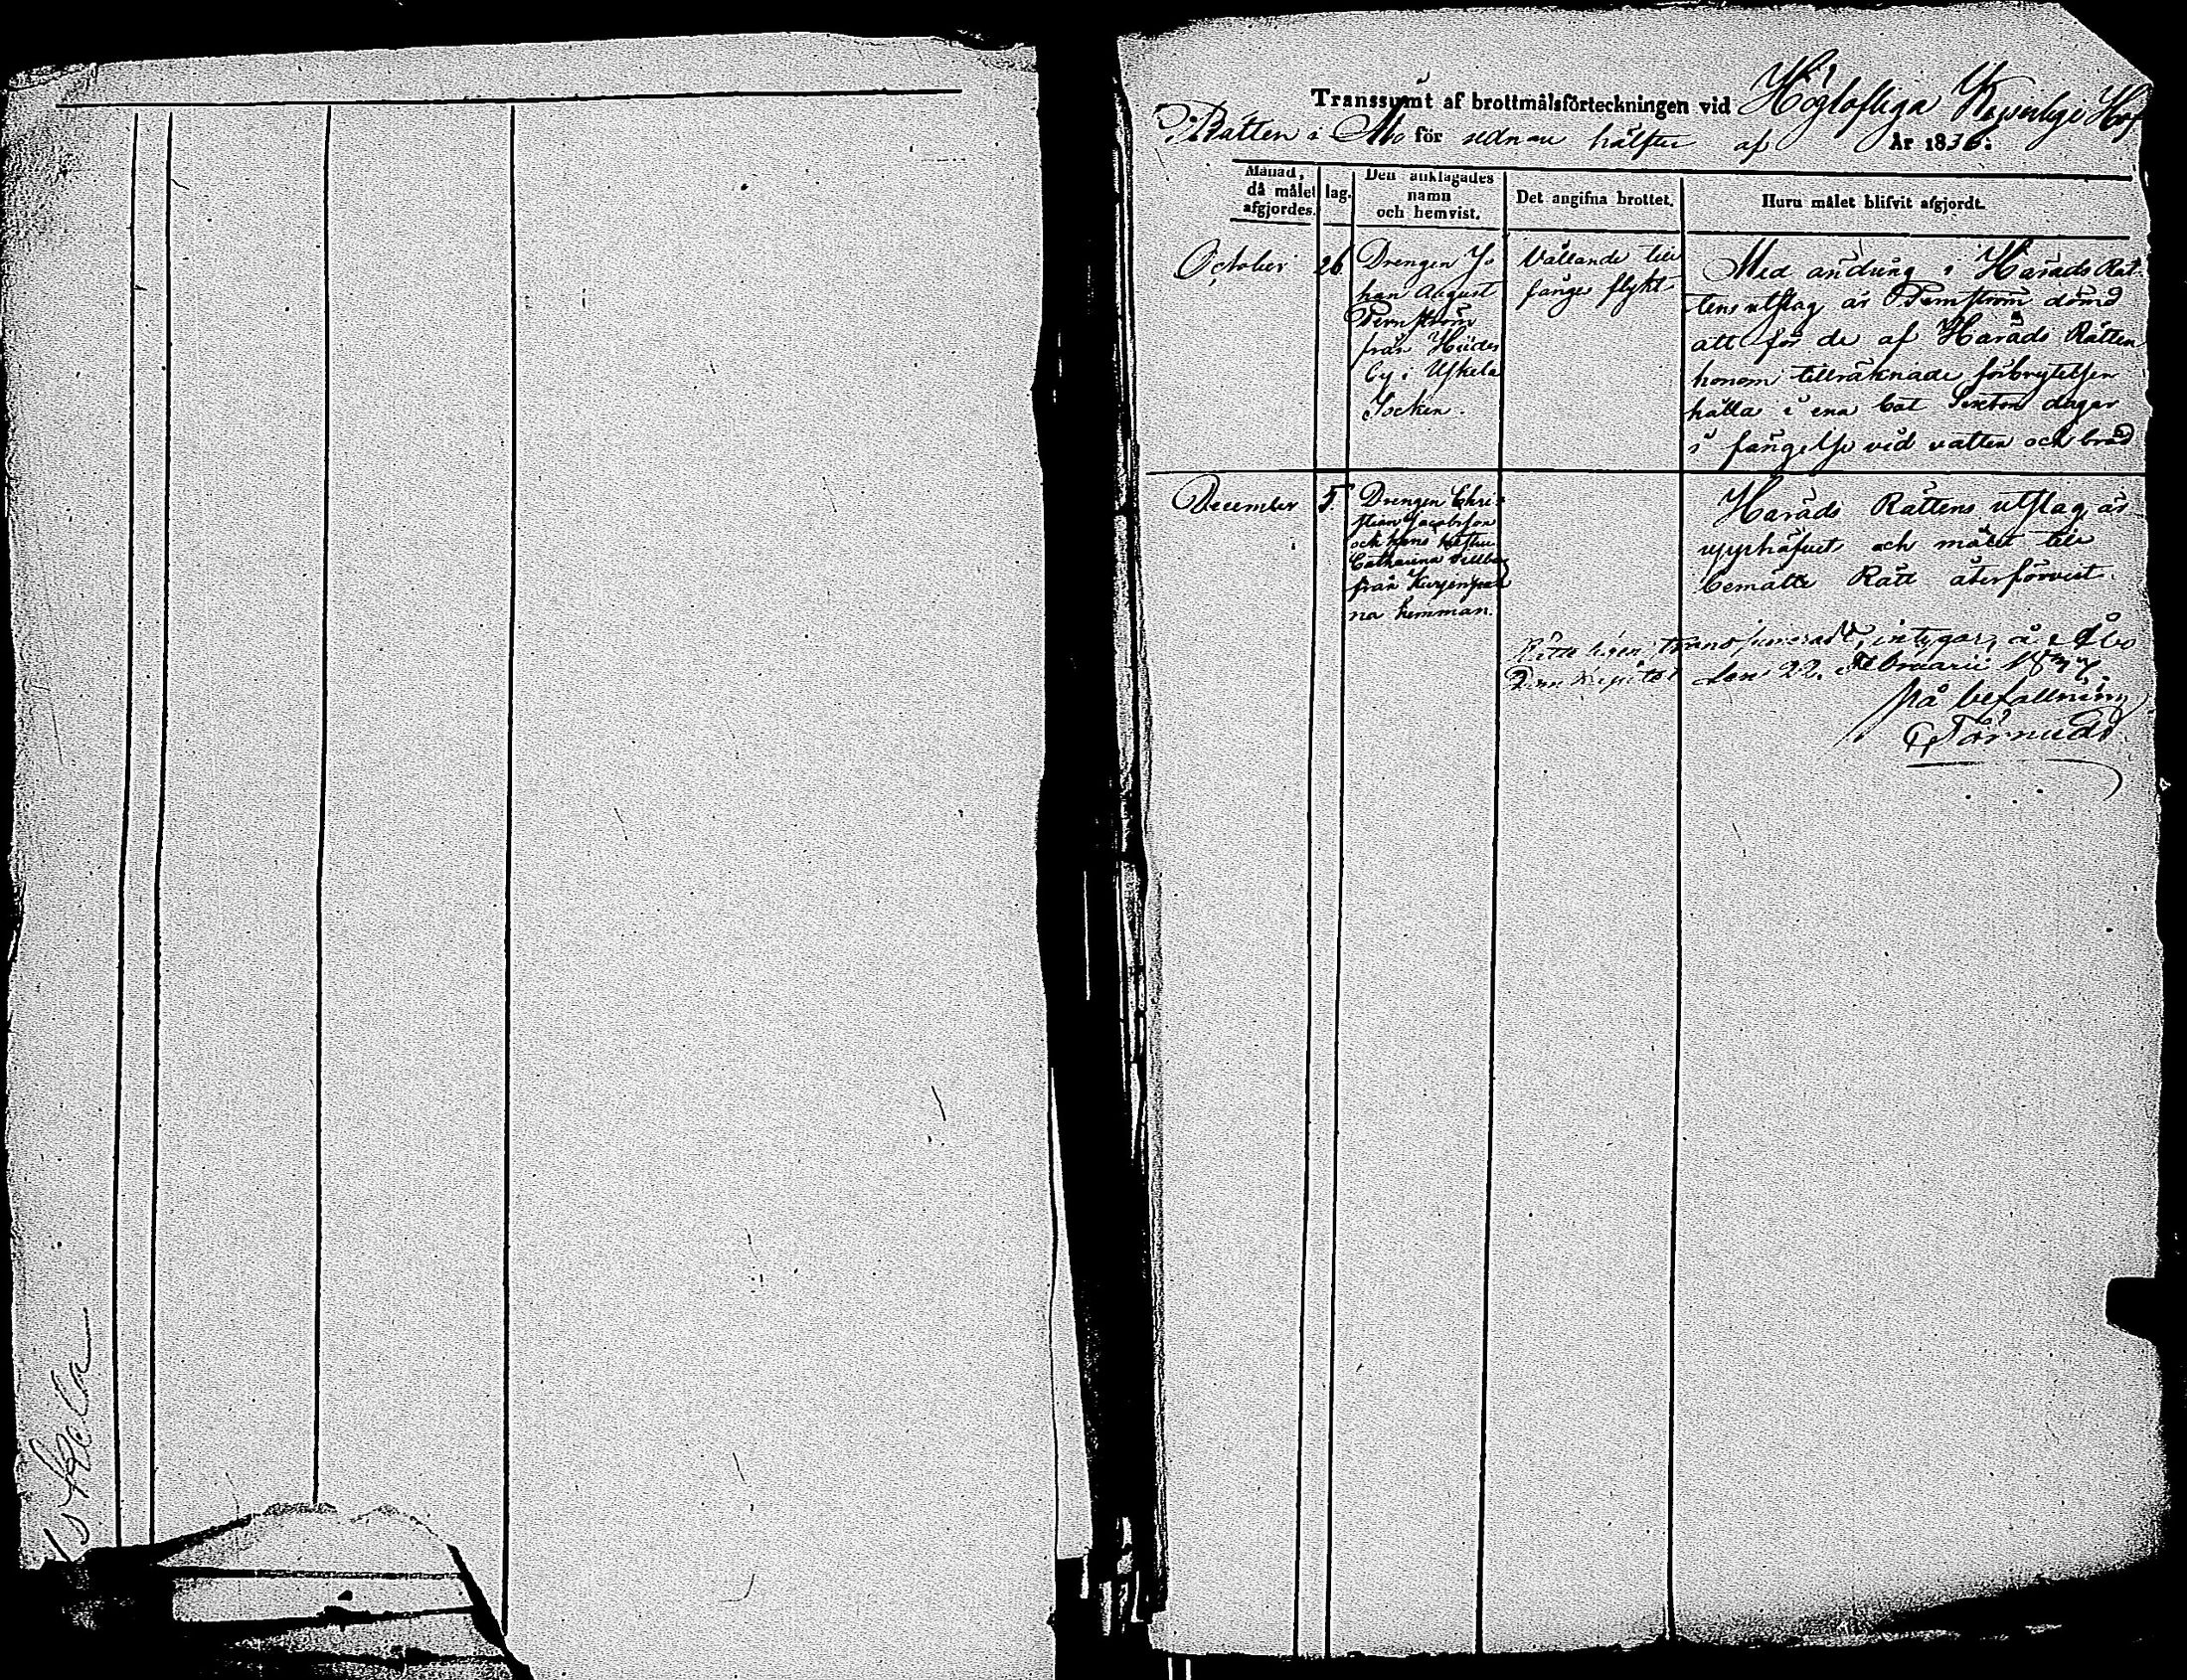 Uskela
Transsumt af brottmålsförteckningen vid Höglofliga Kejserliga Hof
Rätten i Åbo för sednare hälften af År 1836.
Månad, då målet afgjordes.
Dag.
Den anklagades namn och hemvist.
Det angifna brottet.
Huru målet blifvit afgjordt.
October 26
Drengen Jo
han August
Pernström
från Hiides
by i Uskela
Socken.
Vållande till
fånges flykt
Med ändring i Härads Rät-
tens utslag är Pernström dömd
att för de af Härads Rätten
honom tillräknade förbrytelser
hålla i ena bot Sexton dagar
i fängelse vid vatten och bröd
December 5.
Drengen Chri-
stian Jacobsson
och hans hustru
Catharina
från
na hemman.
Härads Rättens utslag är
upphäfvet och målet till
bemälte Rätt återförvist.
transsumeradt, intygar, å Åbo
Domkapitel den 22. Februarii 1837
På befallning
Törnudd.